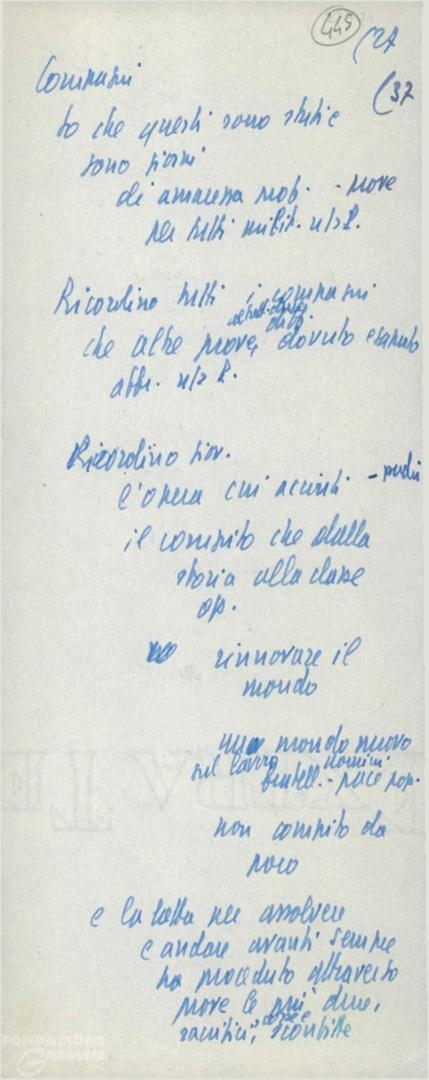 445
(27
(37
Compagni
so che questi sono stati e
sono giorni
di amarezza prof. - prove
per tutti milit. n/s P.
Ricordino tutti i compagni
che altre prove, dovuto
n/s P.
Ricordino giov.
l'opera cui accinti -
il compito che dalla
storia alla classe
op.
rinnovare il
mondo
un mondo nuovo
sul lavoro uomini
fratell. - pace pop.
non compito da
poco
e la lotta per assolvere
e andare avanti sempre
ha proceduto attraverso
prove le più dure,
sacrifici, sconfitte
FONDAZIONE
GRAMSCI